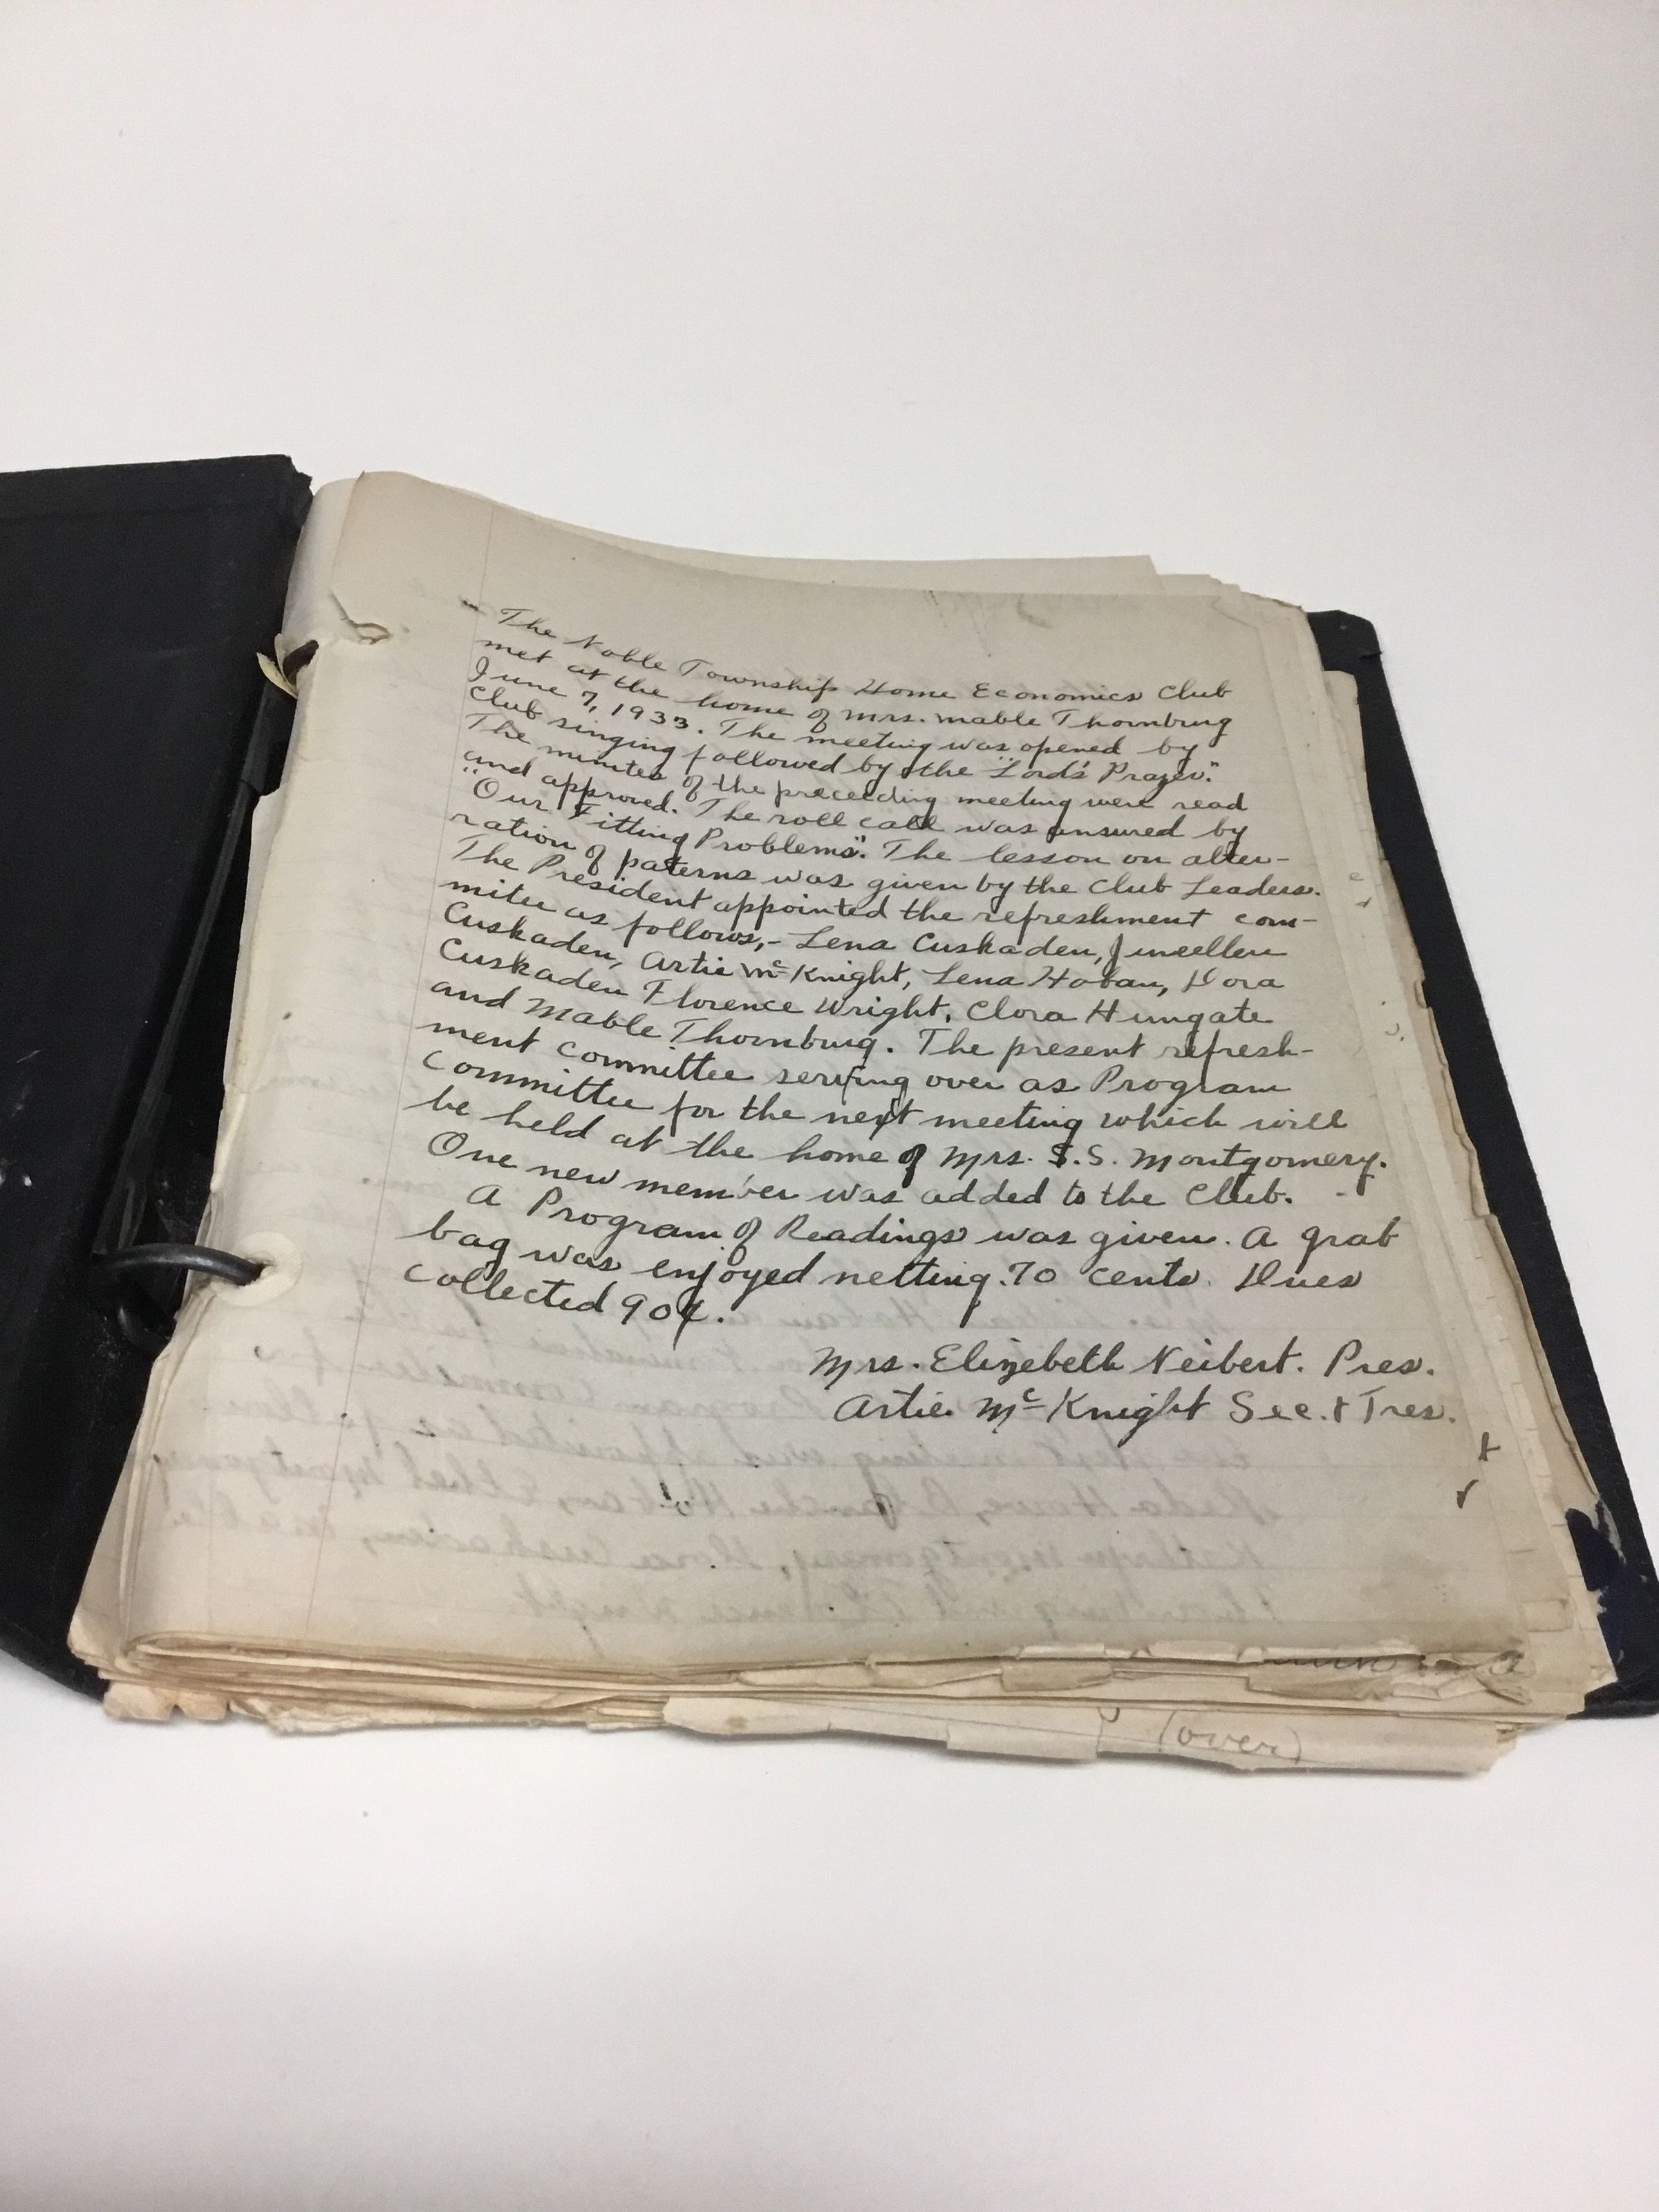 The Noble Township Home Economics Club
met at the home of Mrs. Mable Thornburg
June 7, 1933. The meeting was opened by
Club singing followed by the "Lord's Prayer."
The minutes of the preceeding meeting were read
and approved. The roll call was ansured by
"Our Fitting Problems". The lesson on alter-
ration of paterns was given by the Club Leaders.
The President appointed the refreshment com-
mitee as follows,- Lena Cuskaden, Juneellen
Cuskaden, Artie McKnight, Lena Hoban, Dora
Cuskaden Florence Wright, Clora Hungate
and Mable Thornburg. The present refresh-
ment committee serving over as Program
Committee for the next meeting which will
be held at the home of Mrs. S.S. Montgomery.
One new member was added to the Club.
A Program of Readings was given. A grab
bag was enjoyed netting .70 cents. Dues
collected 90¢.
Mrs. Elizebeth Neibert. Pres.
Artie McKnight Sec. & Tres.
(over)